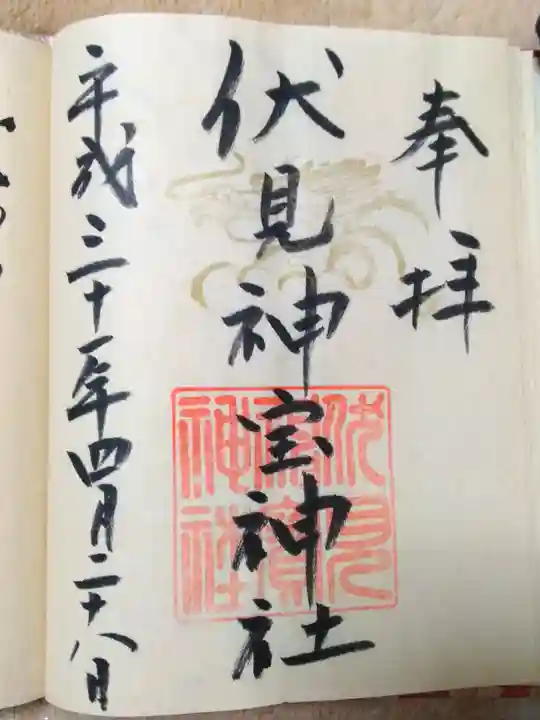 奉拝
伏見神宝神社
伏見神寳神社
平成三十一年四月二十八日